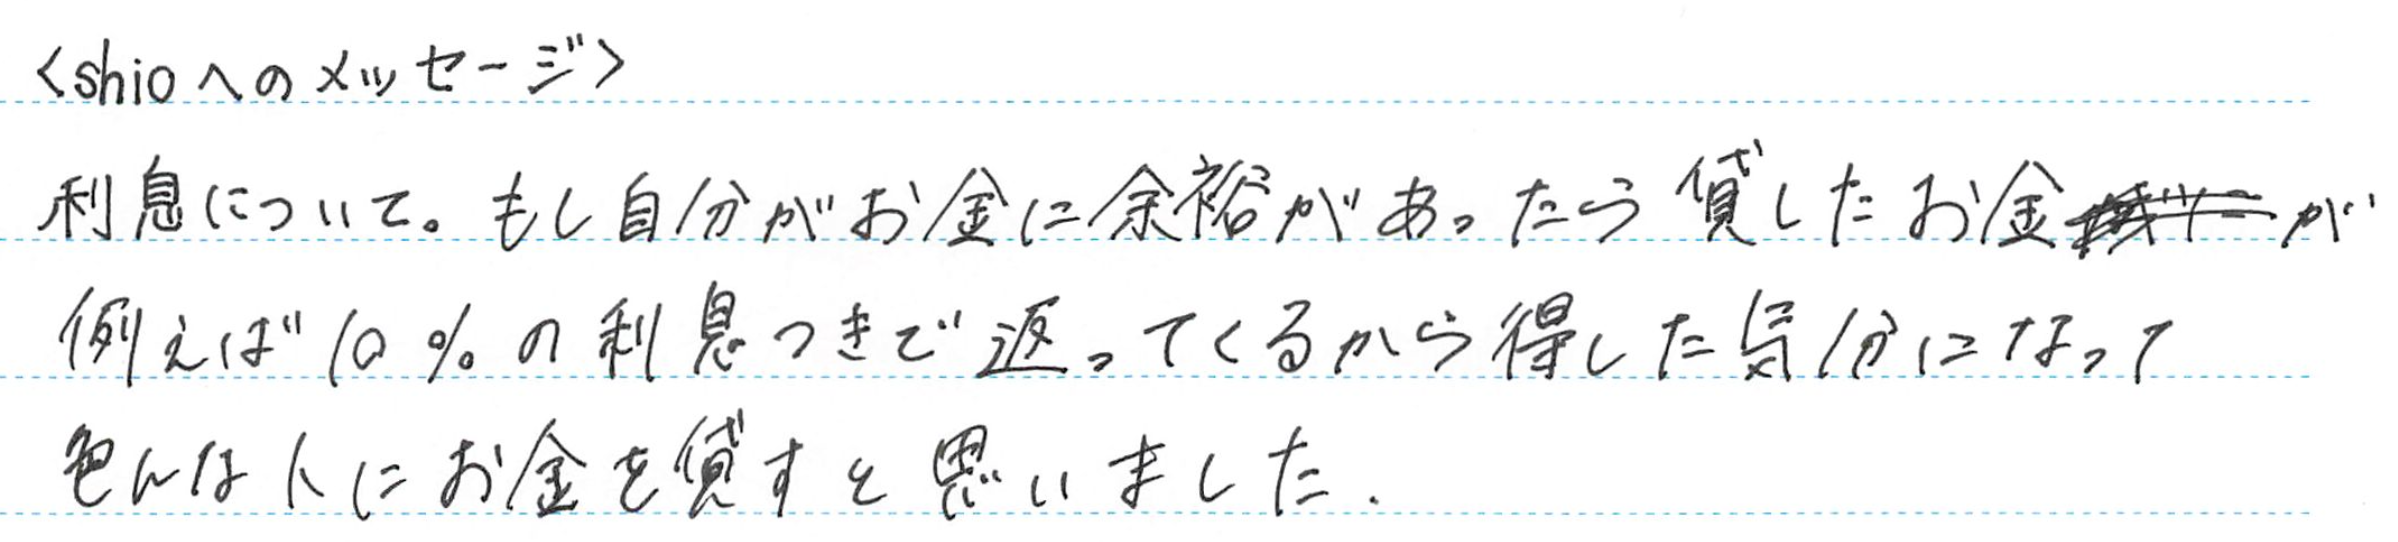 <shioへのメッセージ>
利息について。もし自分がお金に余裕があったら貸したお金が
例えば10%の利息つきで返ってくるから得した気分になって
色んな人にお金を貸すと思いました.